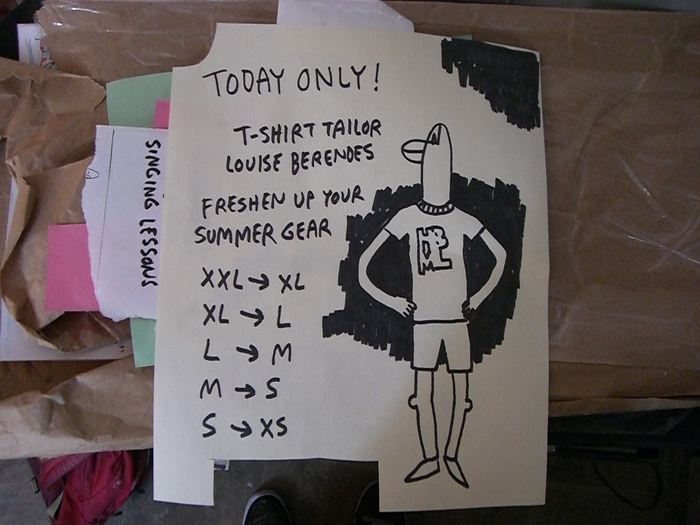 TODAY ONLY!
T-SHIRT TAILOR
LOUISE BERENDES
FRESHEN UP YOUR
SUMMER GEAR
XXL → XL
XL → L
L → M
M → S
S → XS
SINGING LESSONS